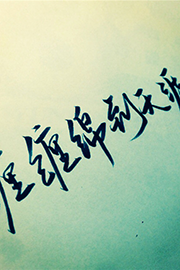 缠绵到天涯